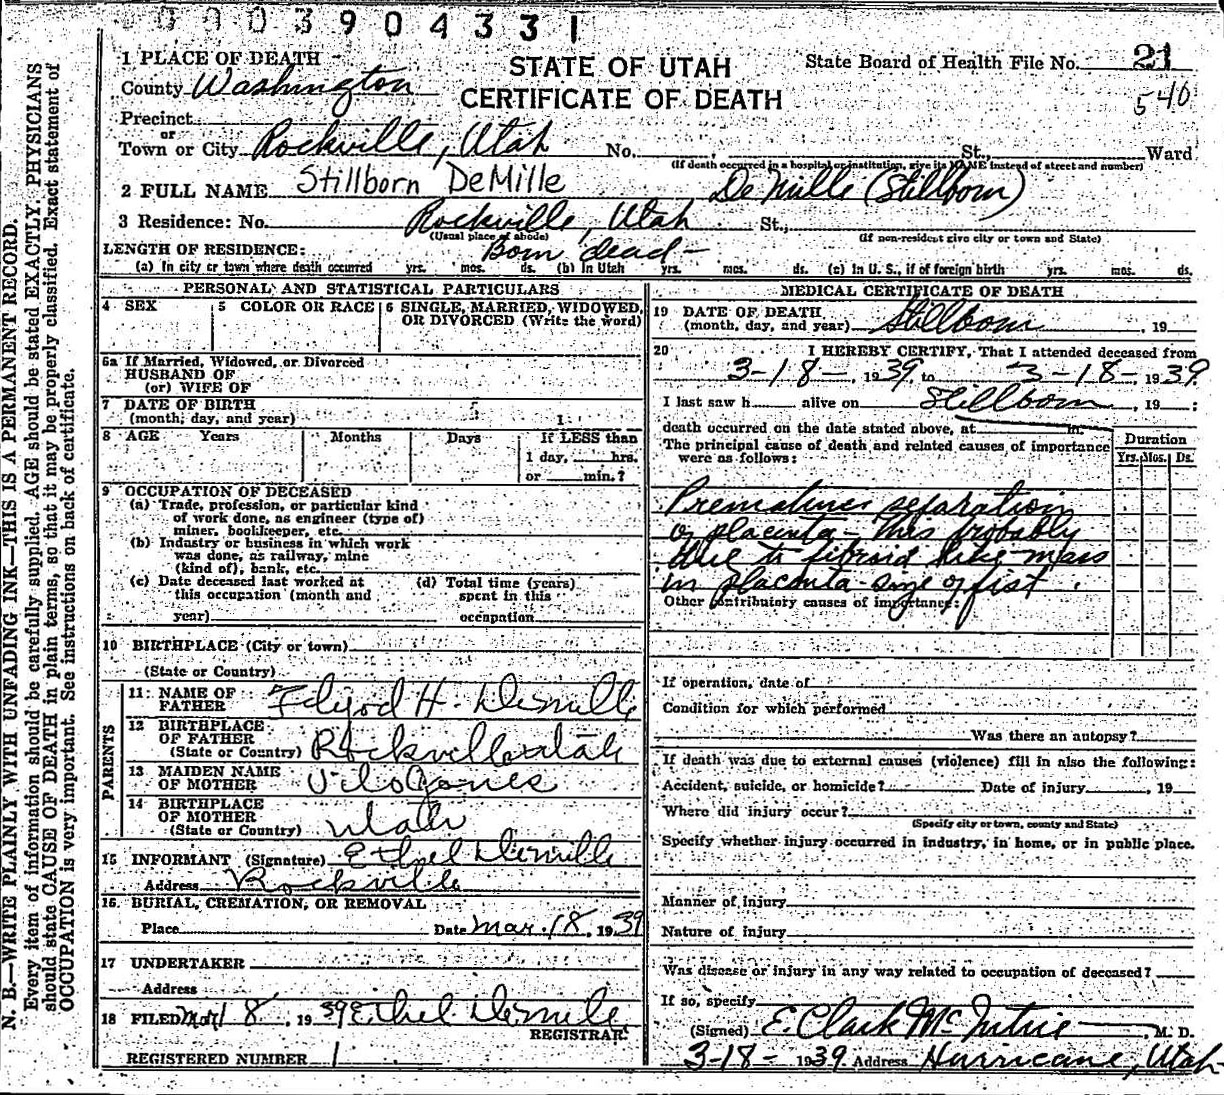 0003904331
1 PLACE OF DEATH
STATE OF UTAH
State Board of Health File No. 21
County Washington
CERTIFICATE OF DEATH
540
Precinct
or
Town or City Rockville, Utah No. St., Ward
(If death occurred in a hospital or institution, give its NAME instead of street and number)
2 FULL NAME Stillborn DeMille DeMille (Stillborn)
3 Residence: No. Rockville, Utah St.,
(Usual place of abode) (If non-resident give city or town and State)
LENGTH OF RESIDENCE: Born dead-
(a) In city or town where death occurred yrs. mos. ds. (b) In Utah yrs. mos. ds. (c) In U. S., if of foreign birth yrs. mos. ds.
PERSONAL AND STATISTICAL PARTICULARS
4 SEX 5 COLOR OR RACE 6 SINGLE, MARRIED, WIDOWED,
OR DIVORCED (Write the word)
6a If Married, Widowed, or Divorced
HUSBAND OF
(or) WIFE OF
7 DATE OF BIRTH
(month, day, and year)
8 AGE Years Months Days If LESS than
1 day, hrs.
or min.?
9 OCCUPATION OF DECEASED
(a) Trade, profession, or particular kind
of work done, as engineer (type of)
miner, bookkeeper, etc.
(b) Industry or business in which work
was done, as railway, mine
(kind of), bank, etc.
(c) Date deceased last worked at (d) Total time (years)
this occupation (month and spent in this
year) occupation
10 BIRTHPLACE (City or town)
(State or Country)
PARENTS
11 NAME OF
FATHER H. DeMille
12 BIRTHPLACE
OF FATHER
(State or Country) Rockville Utah
13 MAIDEN NAME
OF MOTHER Vilo Jones
14 BIRTHPLACE
OF MOTHER
(State or Country) Utah
15 INFORMANT (Signature) Ethel DeMille
Address Rockville
16 BURIAL, CREMATION, OR REMOVAL
Place Date Mar. 18, 1939
17 UNDERTAKER
Address
18 FILED Mar 18, 1939 Ethel DeMille
REGISTRAR.
REGISTERED NUMBER 1
MEDICAL CERTIFICATE OF DEATH
19 DATE OF DEATH
(month, day, and year) Stillborn, 19
20 I HEREBY CERTIFY, That I attended deceased from
3-18-, 1939, to 3-18-, 1939.
I last saw h alive on Stillborn, 19 ;
death occurred on the date stated above, at m.
The principal cause of death and related causes of importance
were as follows:
Duration
Yrs. Mos. Ds.
Premature separation
of placenta - this probably
due to fibroid like mass
in placenta - size of fist.
Other contributory causes of importance:
If operation, date of
Condition for which performed
Was there an autopsy?
If death was due to external causes (violence) fill in also the following:
Accident, suicide, or homicide? Date of injury , 19
Where did injury occur?
(Specify city or town, county and State)
Specify whether injury occurred in industry, in home, or in public place.
Manner of injury
Nature of injury
Was disease or injury in any way related to occupation of deceased?
If so, specify
(Signed) E. Clark McIntire M. D.
3-18-1939. Address Hurricane, Utah-
N. B.—WRITE PLAINLY WITH UNFADING INK—THIS IS A PERMANENT RECORD.
Every item of information should be carefully supplied. AGE should be stated EXACTLY. PHYSICIANS
should state CAUSE OF DEATH in plain terms, so that it may be properly classified. Exact statement of
OCCUPATION is very important. See instructions on back of certificate.